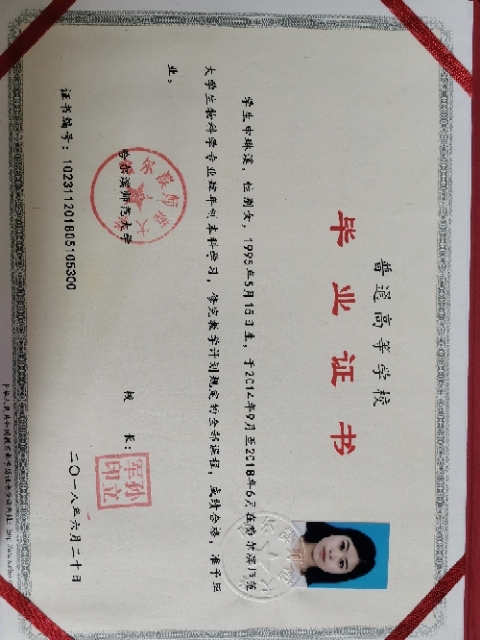 普通高等学校
毕业证书
学生申琳溪，性别女，1995年5月15日生，于2014年9月至2018年6月在哈尔滨师范
大学生物科学专业肆年制本科学习，修完教学计划规定的全部课程，成绩合格，准予毕
业。
哈尔滨师范大学
校 长：
孙立军印
证书编号：102311201805105300
二〇一八年六月二十日